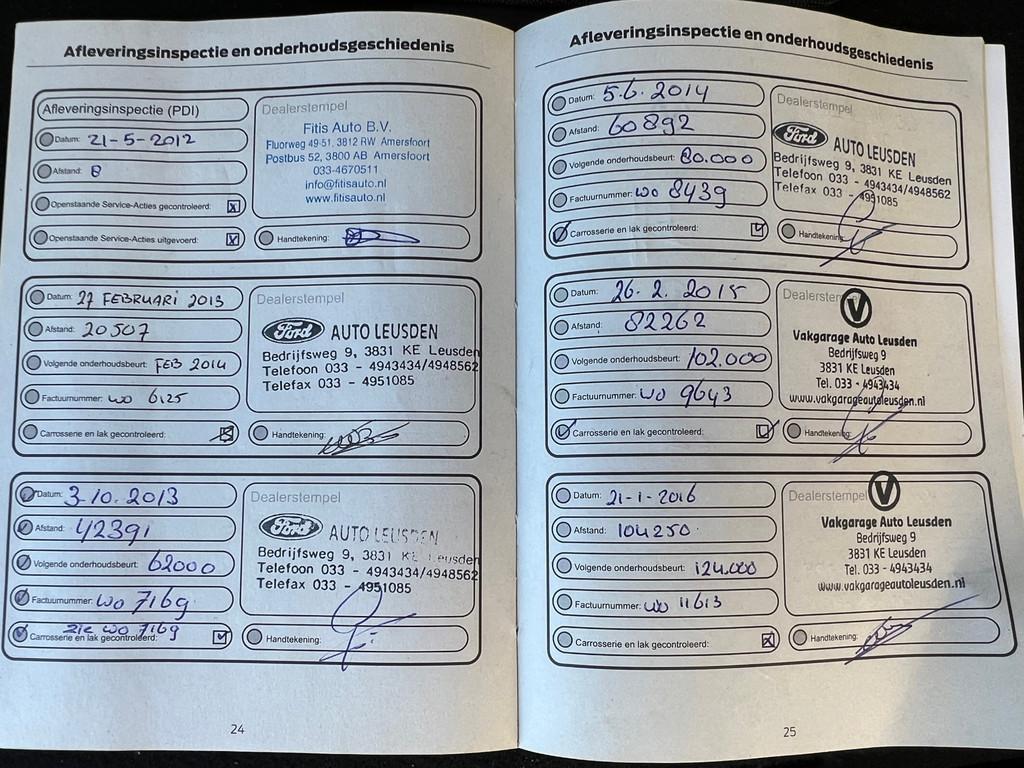 Afleveringsinspectie en onderhoudsgeschiedenis
Afleveringsinspectie (PDI)
Datum: 21-5-2012
Afstand: 8
Openstaande Service-Acties gecontroleerd: x
Openstaande Service-Acties uitgevoerd: x
Dealerstempel
Fitis Auto B.V.
Fluorweg 49-51, 3812 RW Amersfoort
Postbus 52, 3800 AB Amersfoort
033-4670511
info@fitisauto.nl
www.fitisauto.nl
Handtekening:
Datum: 27 FEBRUARI 2013
Afstand: 20507
Volgende onderhoudsbeurt: FEB 2014
Factuurnummer: WO 6125
Carrosserie en lak gecontroleerd:
Dealerstempel
Ford AUTO LEUSDEN
Bedrijfsweg 9, 3831 KE Leusden
Telefoon 033 - 4943434/4948562
Telefax 033 - 4951085
Handtekening:
Datum: 3-10.2013
Afstand: 42391
Volgende onderhoudsbeurt: 62000
Factuurnummer: WO 7169
zie WO 7169
Carrosserie en lak gecontroleerd:
Dealerstempel
Ford AUTO LEUSDEN
Bedrijfsweg 9, 3831 KE Leusden
Telefoon 033 - 4943434/4948562
Telefax 033 - 4951085
Handtekening:
24
Afleveringsinspectie en onderhoudsgeschiedenis
Datum: 5.6.2014
Afstand: 60892
Volgende onderhoudsbeurt: 80.000
Factuurnummer: WO 8439
Carrosserie en lak gecontroleerd:
Dealerstempel
Ford AUTO LEUSDEN
Bedrijfsweg 9, 3831 KE Leusden
Telefoon 033 - 4943434/4948562
Telefax 033 - 4951085
Handtekening:
Datum: 26.2.2015
Afstand: 82262
Volgende onderhoudsbeurt: 102.000
Factuurnummer: WO 9643
Carrosserie en lak gecontroleerd:
Dealerstempel
V
Vakgarage Auto Leusden
Bedrijfsweg 9
3831 KE Leusden
Tel. 033 - 4943434
www.vakgarageautoleusden.nl
Handtekening:
Datum: 21-1-2016
Afstand: 104250
Volgende onderhoudsbeurt: 124.000
Factuurnummer: WO 11613
Carrosserie en lak gecontroleerd: x
Dealerstempel
V
Vakgarage Auto Leusden
Bedrijfsweg 9
3831 KE Leusden
Tel. 033 - 4943434
www.vakgarageautoleusden.nl
Handtekening:
25